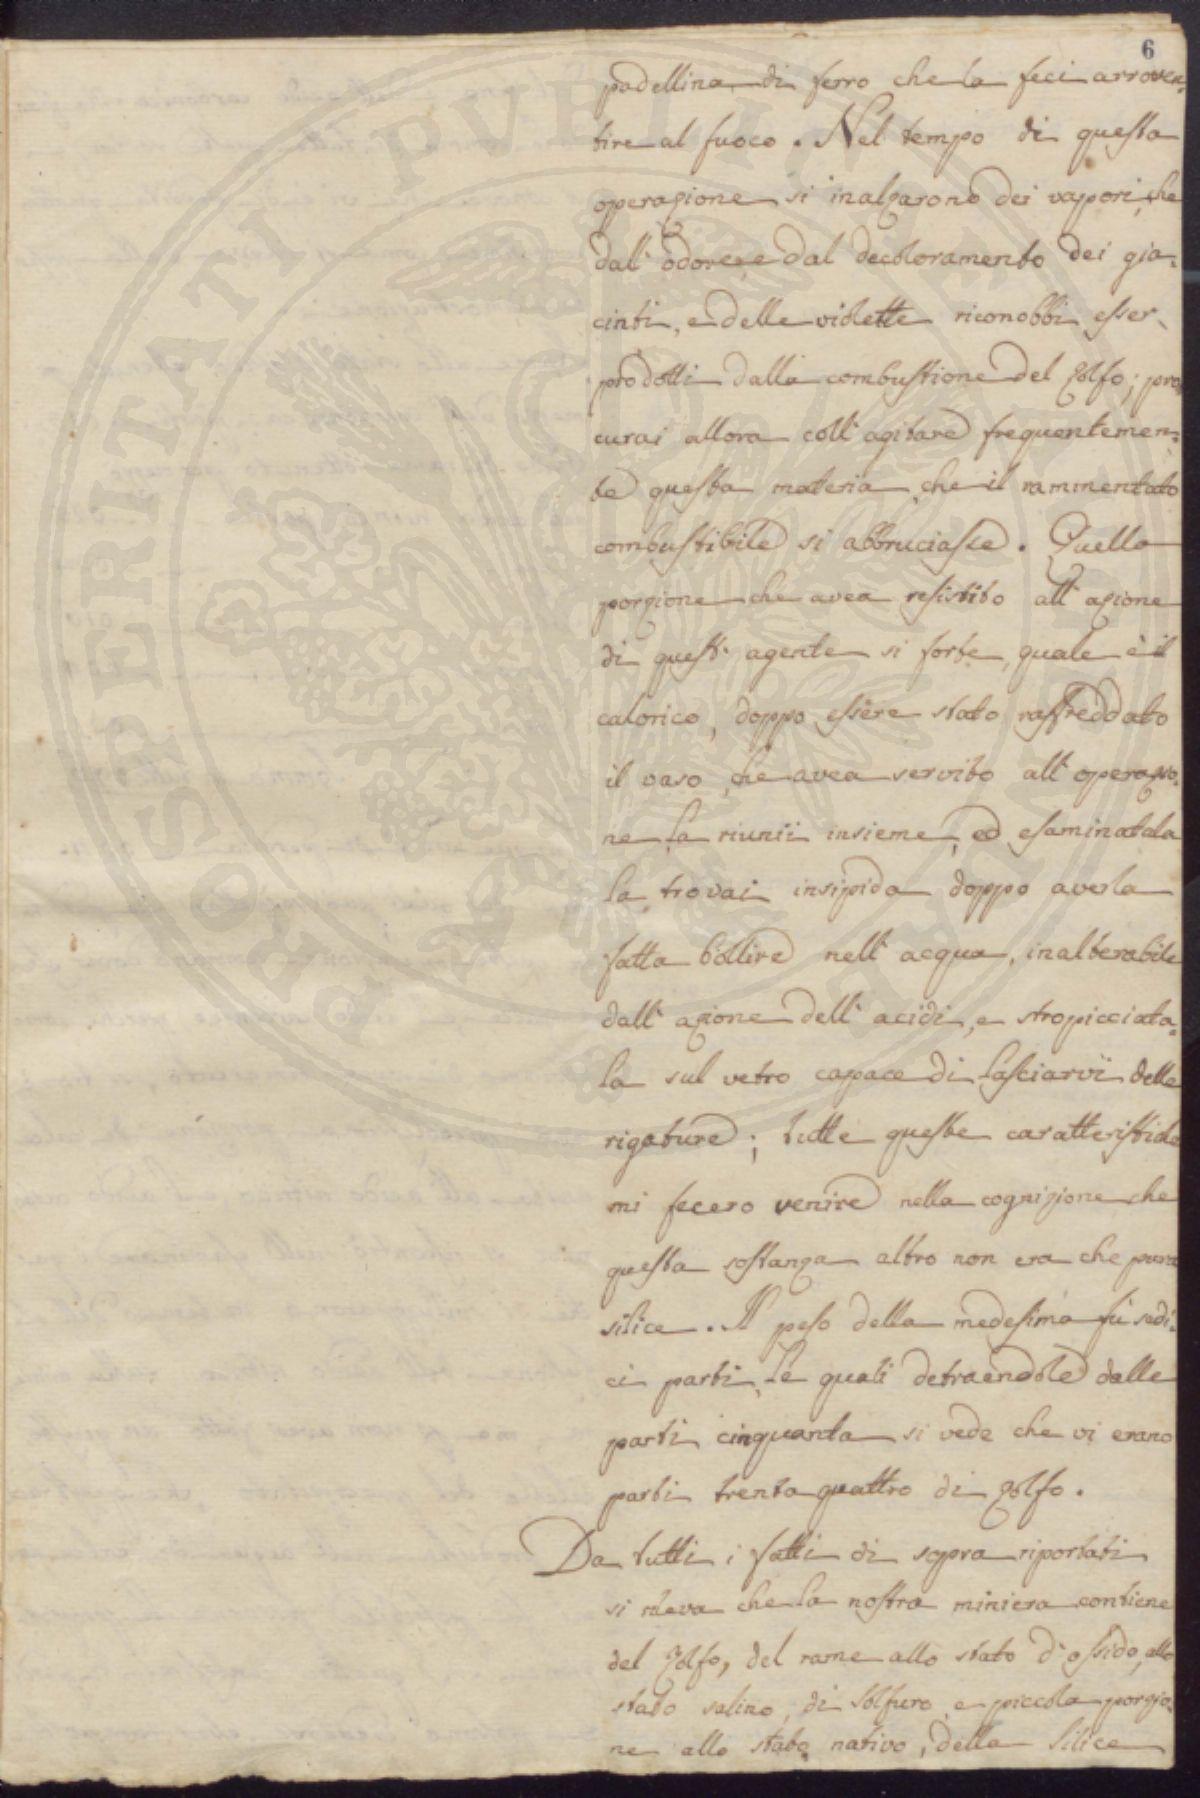 6
padellina di ferro che la feci arroven-
tire al fuoco. Nel tempo di questa
operazione si inalzarono dei vapori, che
dall' odore, e dal decoloramento dei gia-
cinti, e delle violette riconobbi esser
prodotti dalla combustione del Zolfo; pro-
curai allora coll' agitare frequentemen-
te questa materia che il rammentato
combustibile si abbruciasse. Quella
porzione che avea resistito all' azione
di quest' agente si forte, quale è il
calorico, doppo essere stato raffreddato
il vaso, che avea servito all' operazio-
ne la riunii insieme, ed esaminatala
la trovai insipida doppo averla
fatta bollire nell' acqua, inalterabile
dall' azione dell' acidi, e stropicciata-
la sul vetro capace di lasciarvi delle
rigature; tutte queste caratteristiche
mi fecero venire nella cognizione che
questa sostanza altro non era che pura
silice. Il peso della medesima fù sedi-
ci parti, le quali detraendole dalle
parti cinquanta si vede che vi erano
parti trenta quattro di Zolfo.
Da tutti i fatti di sopra riportati
si rileva che la nostra miniera contiene
del Zolfo, del rame allo stato d' ossido, allo
stato salino, di Solfuro, e piccola porzio-
ne allo stato nativo, della Silice
PROSPERITATI PVBLICAE